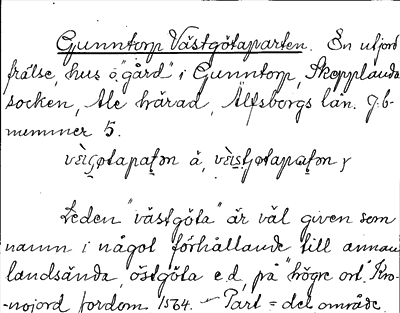 Gunntorp Västgötaparten. En utjord
frälse, hus o. "gård" i Gunntorp, Skepplanda
socken, Ale härad, Älfsborgs län. J.b-
nummer 5.
å, y
Leden "västgöta" är väl given som
namn i något förhållande till annan
landsända, östgöta e.d, på "högre ort." Kro-
-nojord fordom 1564. — Part = del, område.